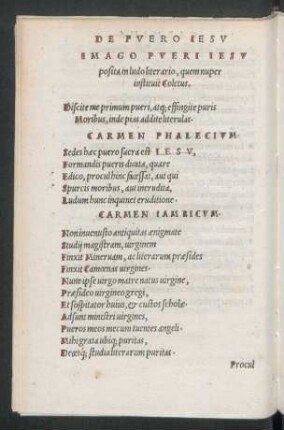 DE PVERO IESV
IMAGO PVERI IESV
posita in ludo literario, quem nuper
instituit Coletus.
Discite me primum pueri, atq; effingite puris
Moribus, inde pias addite literulas.
CARMEN PHALECIVM.
Sedes hæc puero sacra est IESV,
Formandis pueris dicata, quare
Edico, procul hinc facessat, aut qui
Spurcis moribus, aut inerudita,
Ludum hunc inquinet eruditione.
CARMEN IAMBICVM.
Non inuenusto antiquitas ænigmate
Studij magistram, uirginem
Finxit Mineruam, ac literarum præsides
Finxit Camœnas uirgines.
Nunc ipse uirgo matre natus uirgine,
Præsideo uirgineo gregi,
Et sospitator huius, & custos scholæ.
Adsunt ministri uirgines,
Pueros meos mecum tuentes angeli.
Mihi grata ubiq; puritas,
Decetq; studia literarum puritas.
Procul